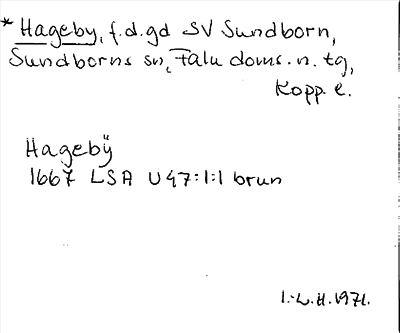 * Hageby, f.d.gd SV Sundborn,
Sundborns sn, Falu doms. n. tg,
Kopp. l.
Hagebÿ
1667 LSA U47:1:1 brun
I.-L.H. 1971.